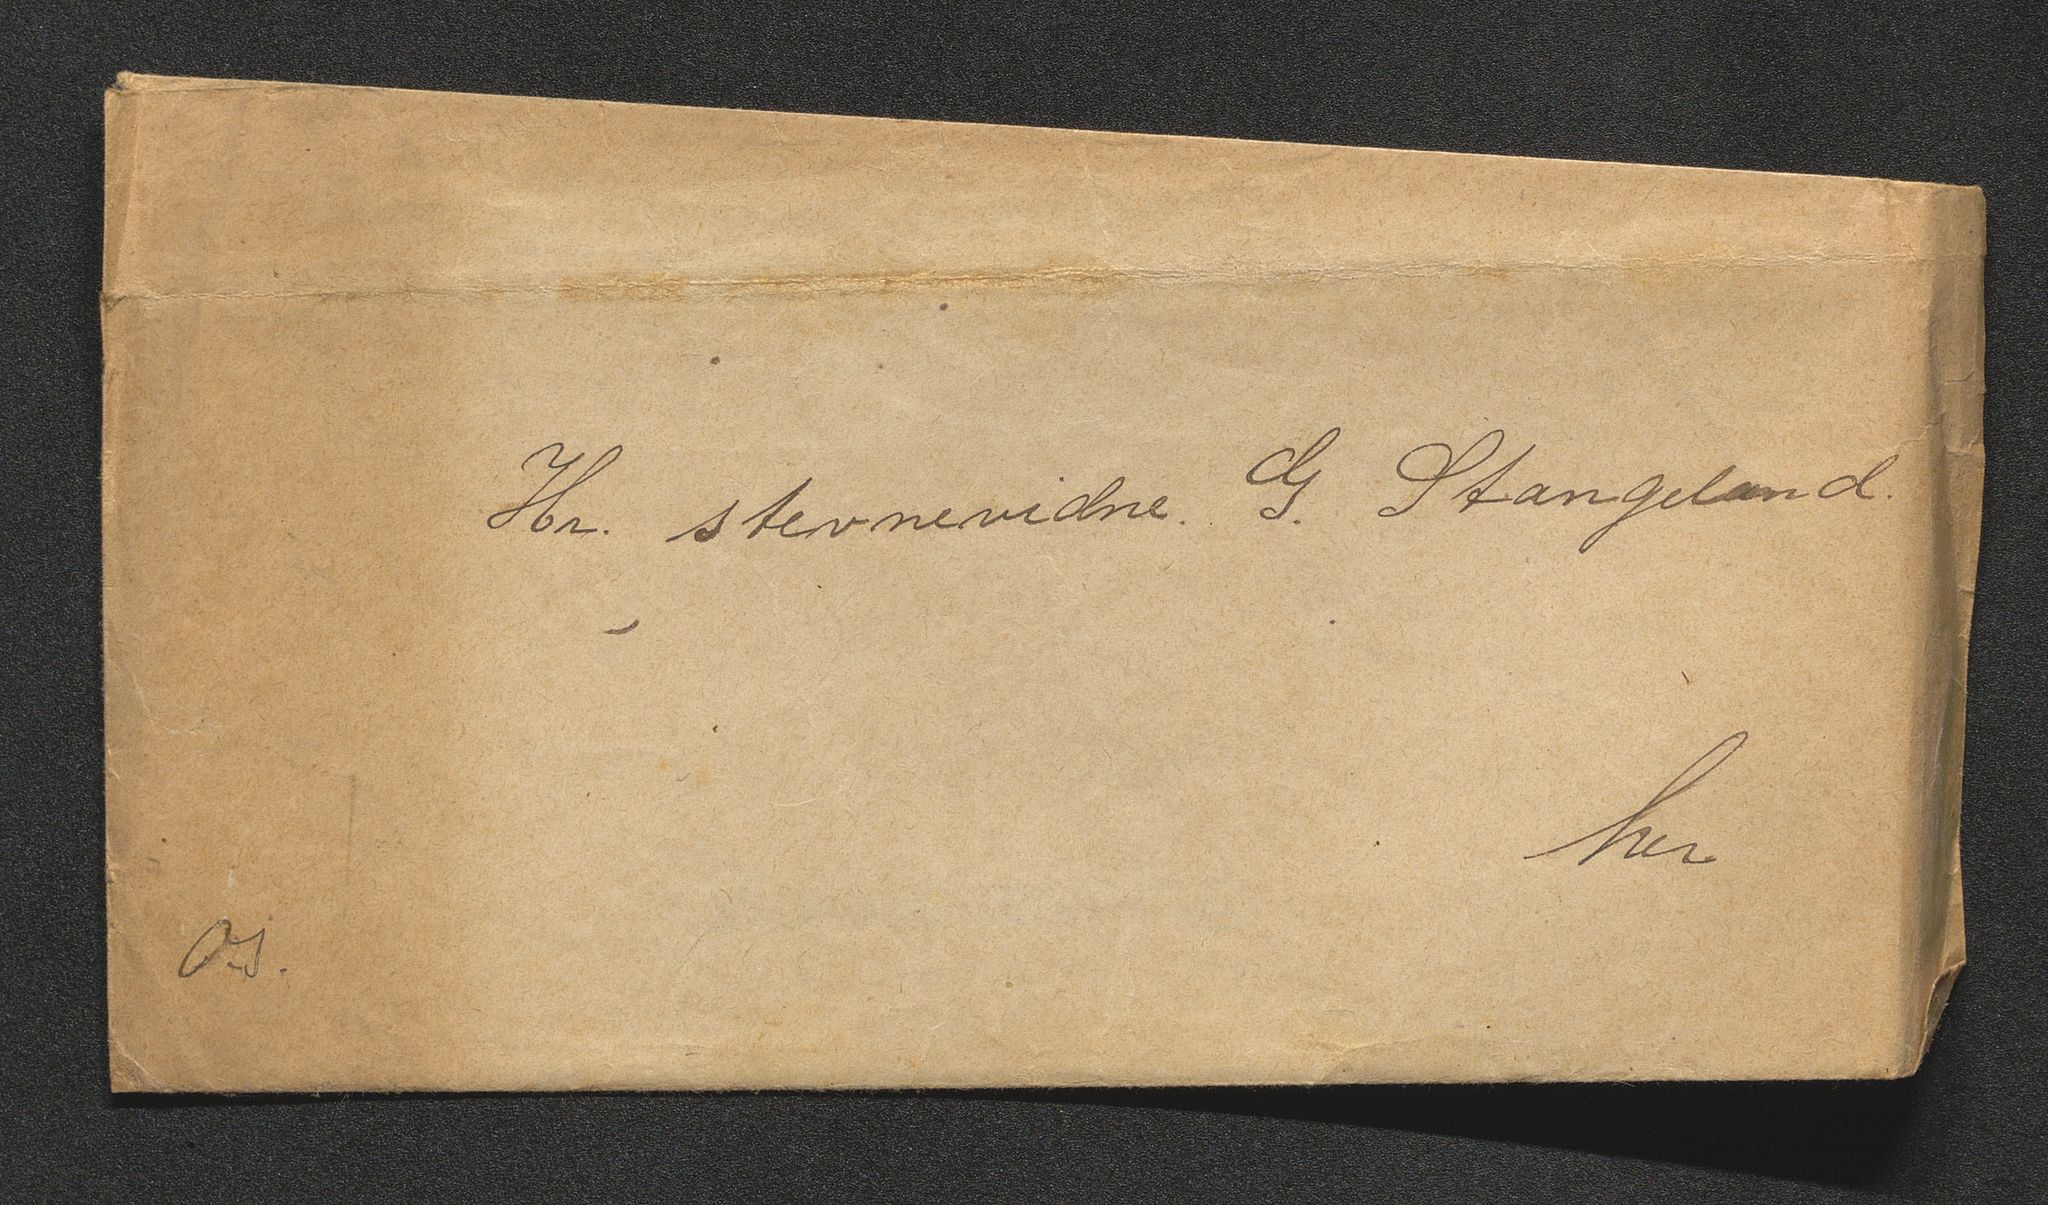 Hr. stevnevidne. G. Stangeland.
her
O.s.